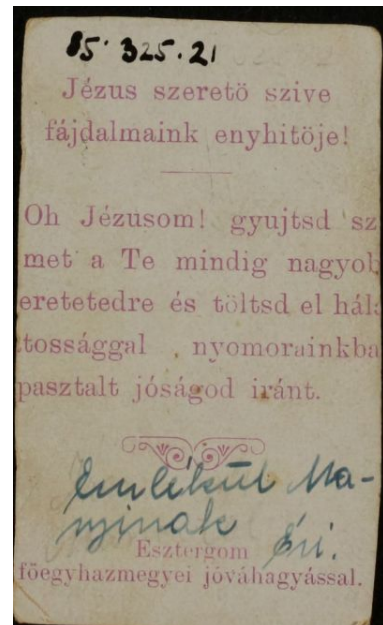 85.325.21
Jézus szeretö szive
fájdalmaink enyhitöje!
Oh Jézusom! gyujtsd sz
met a Te mindig nagyob
eretetedre és töltsd el hálá
tossággal nyomorainkba
pasztalt jóságod iránt.
Emlékül Ma-
nzinak Éri.
Esztergom
föegyhazmegyei jóváhagyással.